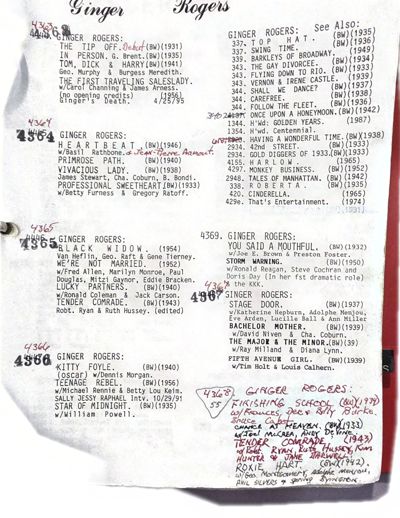 Ginger Rogers
4363
GINGER ROGERS:
THE TIP OFF. Debut (BW)(1931)
IN PERSON. G. Brent.(BW)(1935)
TOM, DICK & HARRY.(BW)(1941)
Geo. Murphy & Burgess Meredith.
THE FIRST TRAVELING SALESLADY.
w/Carol Channing & James Arness.
(no opening credits) (1956)
Ginger's Death. 4/25/95
4364
4364
GINGER ROGERS:
HEARTBEAT. (BW)(1946)
w/Basil Rathbone. & Jean-Pierre Aumont.
PRIMROSE PATH. (BW)(1940)
VIVACIOUS LADY. (BW)(1938)
James Stewart, Cha. Coburn, B. Bondi.
PROFESSIONAL SWEETHEART.(BW)(1933)
w/Betty Furness & Gregory Ratoff.
4365
4365
GINGER ROGERS:
BLACK WIDOW. (1954)
Van Heflin, Geo. Raft & Gene Tierney.
WE'RE NOT MARRIED. (1952)
w/Fred Allen, Marilyn Monroe, Paul
Douglas, Mitzi Gaynor, Eddie Bracken.
LUCKY PARTNERS. (BW)(1940)
w/Ronald Coleman & Jack Carson.
TENDER COMRADE. (BW)(1943)
Robt. Ryan & Ruth Hussey. (edited)
4366
4366
GINGER ROGERS:
KITTY FOYLE. (BW)(1940)
(oscar) w/Dennis Morgan.
TEENAGE REBEL. (BW)(1956)
w/Michael Rennie & Betty Lou Keim.
SALLY JESSY RAPHAEL Intv. 10/29/91
STAR OF MIDNIGHT. (BW)(1935)
w/William Powell.
GINGER ROGERS: See Also:
337. TOP HAT. (BW)(1935)
337. SWING TIME. (BW)(1936)
339. BARKLEYS OF BROADWAY. (1949)
343. THE GAY DIVORCEE. (BW)(1934)
343. FLYING DOWN TO RIO. (BW)(1933)
343. VERNON & IRENE CASTLE. (BW)(1939)
344. SHALL WE DANCE? (BW)(1937)
344. CAREFREE. (BW)(1938)
344. FOLLOW THE FLEET. (BW)(1936)
ONCE UPON A HONEYMOON.(BW)(1942)
1344. H'Wd: GOLDEN YEARS. (1987)
1354. H'wd. Centennial.
HAVING A WONDERFUL TIME.(BW)(1938)
2934. 42nd STREET. (BW)(1933)
2934. GOLD DIGGERS OF 1933.(BW)(1933)
4155. HARLOW. (1965)
4297. MONKEY BUSINESS. (BW)(1952)
2948. TALES OF MANHATTAN. (BW)(1942)
338. ROBERTA. (BW)(1935)
420. CINDERELLA. (1965)
429e. That's Entertainment. (1974)
4369. GINGER ROGERS:
YOU SAID A MOUTHFUL. (BW)(1932)
w/Joe E. Brown & Preston Foster.
STORM WARNING. (BW)(1950)
w/Ronald Reagan, Steve Cochran and
Doris Day (In her fst dramatic role)
the KKK.
4367
GINGER ROGERS:
STAGE DOOR. (BW)(1937)
w/Katherine Hepburn, Adolphe Menjou,
Eve Arden, Lucille Ball & Ann Miller
BACHELOR MOTHER. (BW)(1939)
w/David Niven & Cha. Coburn.
THE MAJOR & THE MINOR.(BW)(39)
w/Ray Milland & Diana Lynn.
FIFTH AVENUE GIRL. (BW)(1939)
w/Tim Holt & Louis Calhern.
4368
55
GINGER ROGERS:
FINISHING SCHOOL (BW)(1934)
w/Frances Dee & Billy Burke.
Bruce Cabot
CHANCE AT HEAVEN. (BW)(1933)
w/Joel McCrea, Andy Devine.
TENDER COMRADE. (1943)
w/Robt. Ryan, Ruth Hussey, Kim
HUNTER & JANE DARWELL.
ROXIE HART. (BW)(1942).
w/Geo. Montgomery, Adolphe Menjou,
PHIL SILVERS & Spring Byington.